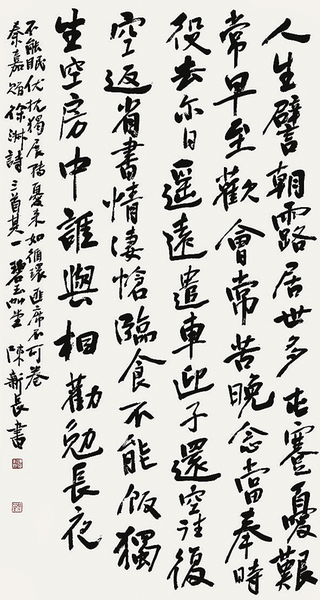 人生譬朝露居世多屯蹇憂艱
常早至歡會常苦晚念當奉時
役去尔日遥遠遣車迎子還空往復
空返省書情凄愴臨食不能飯獨
坐空房中誰與相勸勉長夜
不能眠伏枕獨展轉憂來如循環匪席不可卷
秦嘉贈徐淑詩三首其一 碧玉堂 陳新長書